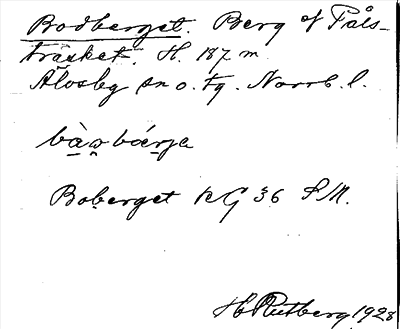 Bodberget. Berg of Fåls-
träsket. H. 187 m.
Älvsby sn o. tg. Norrb. l.
bɑ̀ᶎbǽrjɑ
Boberget KG 36 S.M.
H. Rutberg 1928